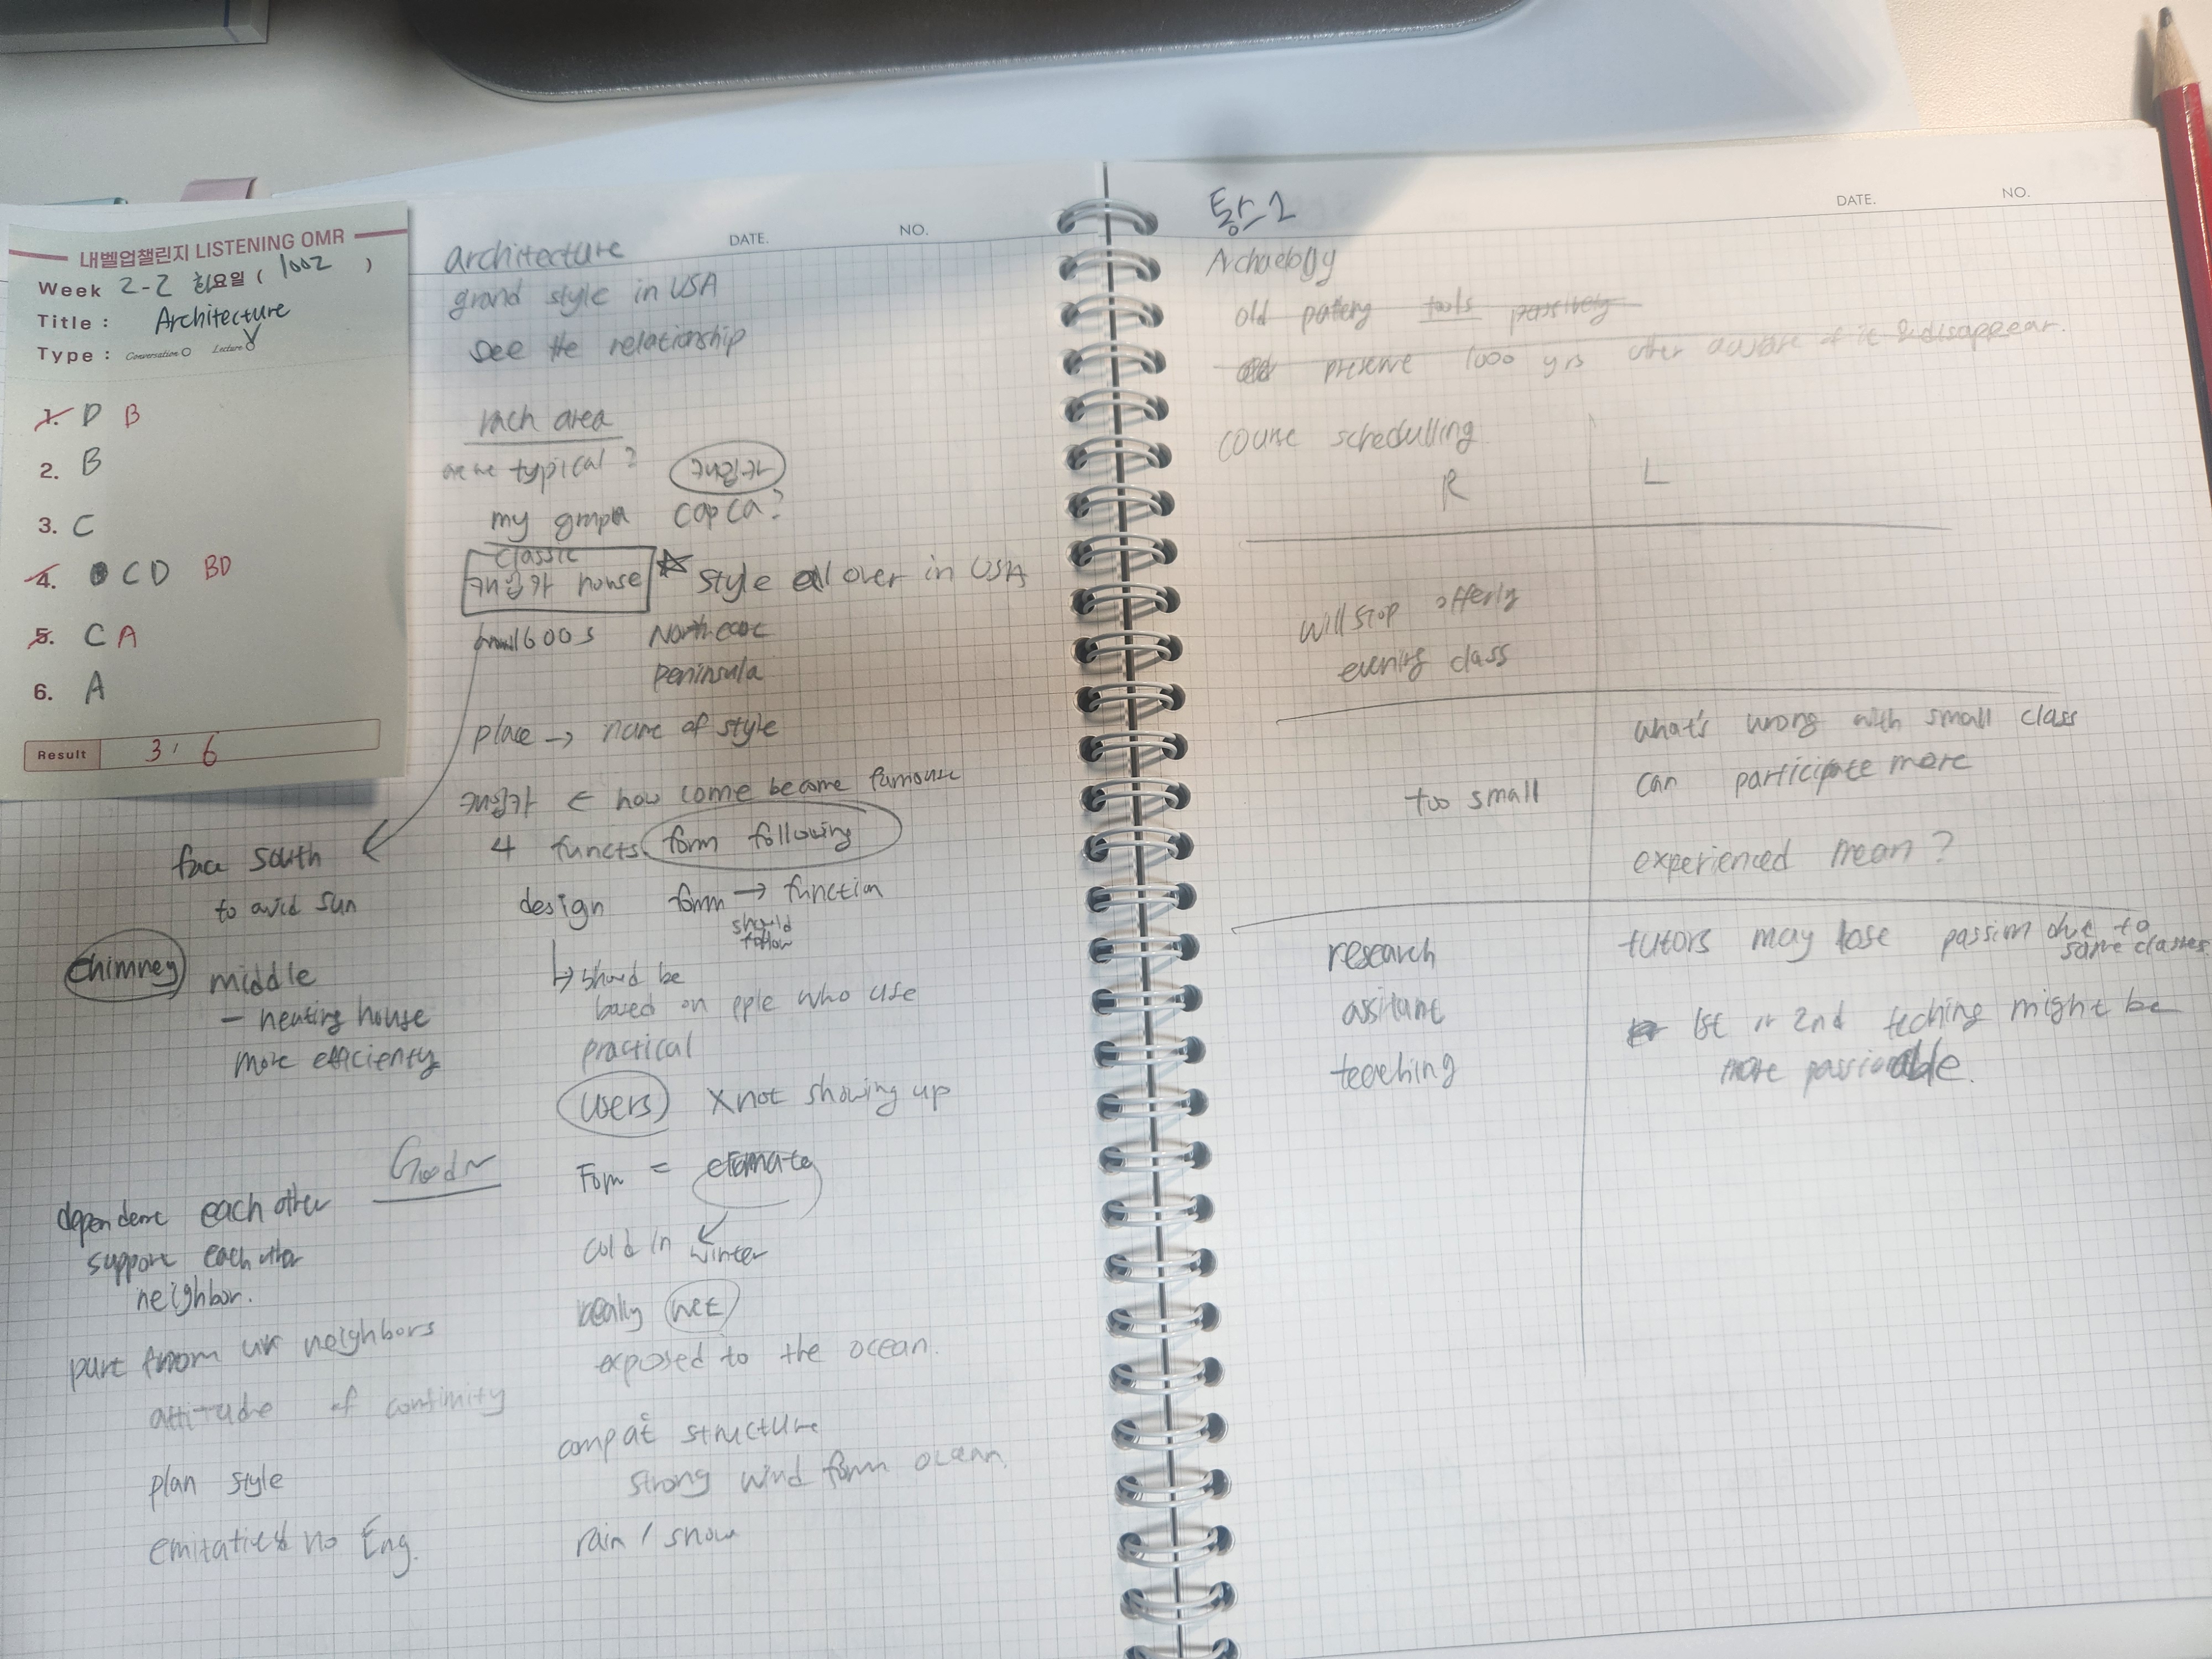 내벨업챌린지 LISTENING OMR
Week 2-2 화요일 ( 1002 )
Title : Architecture
Type : Conversation Lecture
1. D B
2. B
3. C
4. C D BD
5. C A
6. A
Result 3 / 6
DATE. NO.
architecture
grand style in USA
see the relationship
each area
are we typical ?
케입카
my grmpa cap ca?
classic
케입카 house
style all over in USA
1600s North
peninsula
place → name of style
케입카 ← how come become famouse
4 functs. form following
design form → function
should
follow
↳ should be
based on pple who use
practical
users X not showing up
Form =
cold in winter
really wet
exposed to the ocean.
compat structure
c
strong wind form ocean.
rain / snow
face south
to avid sun
chimney middle
- heating house
more efficienty
Good~
dependent each other
support each other
neighbor.
part from ur neighbors
attitude of
plan style
no Eng.
DATE. NO.
통스 1
Archaelogy
old pattery tools passively
old preserve 1000 yrs utter aware of it & disappear.
course schedulling
R L
will stop offerly
evening class
too small
what's wrong with small class
can participate more
experienced mean ?
research
assitant
teaching
tutors may lose passion due to
same classes.
1st or 2nd teching might be
more passionable.